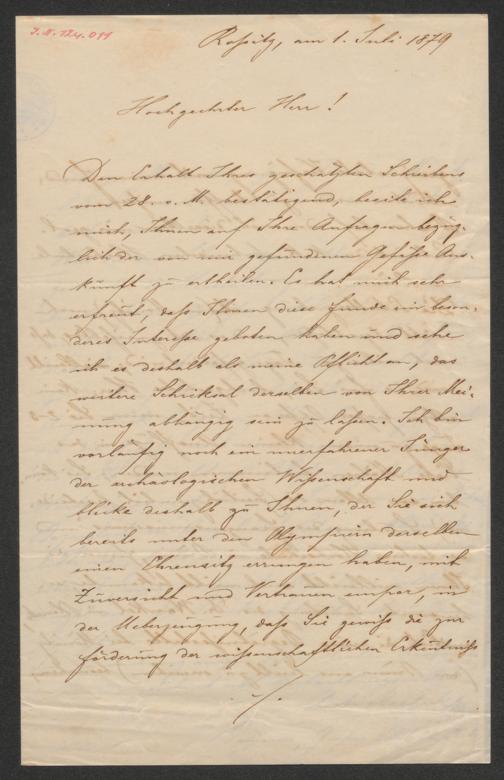 J. N. 124.011
Rossitz, am 1. Juli 1879
Hochgeehrter Herr!
Den Erhalt Ihres geschätzten Schreibens
vom 28. v. M. bestätigend, beeile ich
mich, Ihnen auf Ihre Anfragen bezüg-
lich der von mir gefundenen Gefäße Aus-
kunft zu ertheilen. Es hat mich sehr
erfreut, daß Ihnen diese Funde ein beson-
deres Interesse geboten haben und sehe
ich es deshalb als meine Pflicht an, das
weitere Schicksal derselben von Ihrer Mei-
nung abhängig sein zu laßen. Ich bin
vorläufig noch ein unerfahrener Jünger
der archäologischen Wißenschaft und
blicke deshalb zu Ihnen, der Sie sich
bereits unter den Olympiern derselben
einen Ehrensitz errungen haben, mit
Zuversicht und Vertrauen empor, in
der Ueberzeugung, daß Sie gewiß die zur
Förderung der wißenschaftlichen Erkentniß
./.